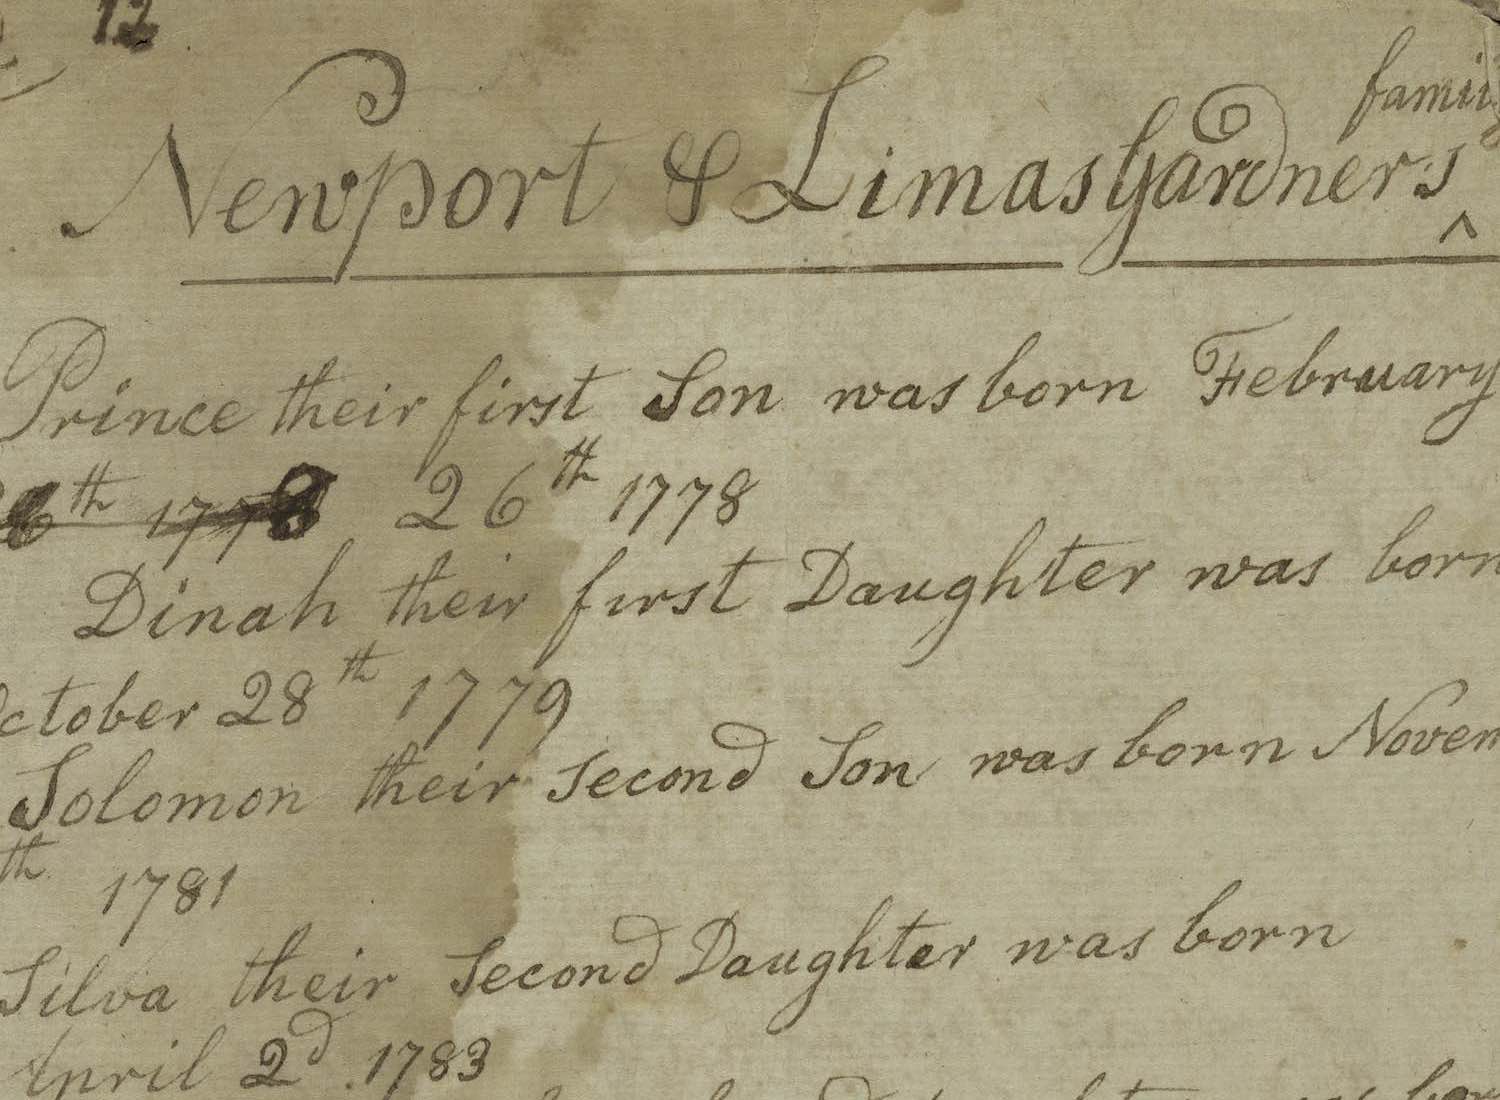 12
Newport & Limas Gardners ^ family
Prince their first Son was born February
26th 1778 26th 1778
Dinah their first Daughter was born
October 28th 1779
Solomon their second Son was born Novem
th 1781
Silva their Second Daughter was born
April 2d 1783